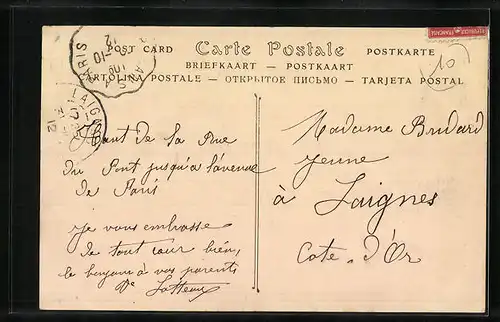 POST CARD Carte Postale POSTKARTE
BRIEFKAART — POSTKAART
CARTOLINA POSTALE — ОТКРЫТОЕ ПИСЬМО — TARJETA POSTAL
PARIS
LAIGNES
10
Haut de la Rue
du Pont jusqu'à l'avenue
de Paris
Je vous embrasse
de tout cœur bien,
le bonjour à vos parents
Madame Budard
Jeune
à Laignes
Côte-d'Or